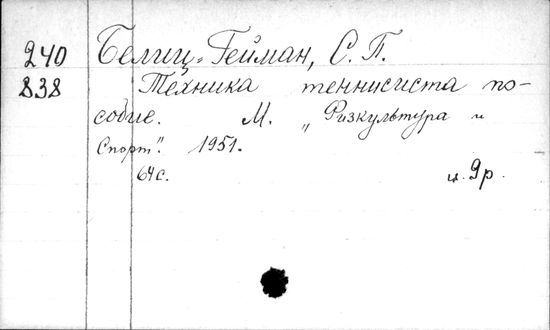 240 Белиц-Гейман, С. П.
838 Техника теннисиста по-
собие. М. „Физкультура и
Спорт". 1951.
64 с. ц. 9 р.